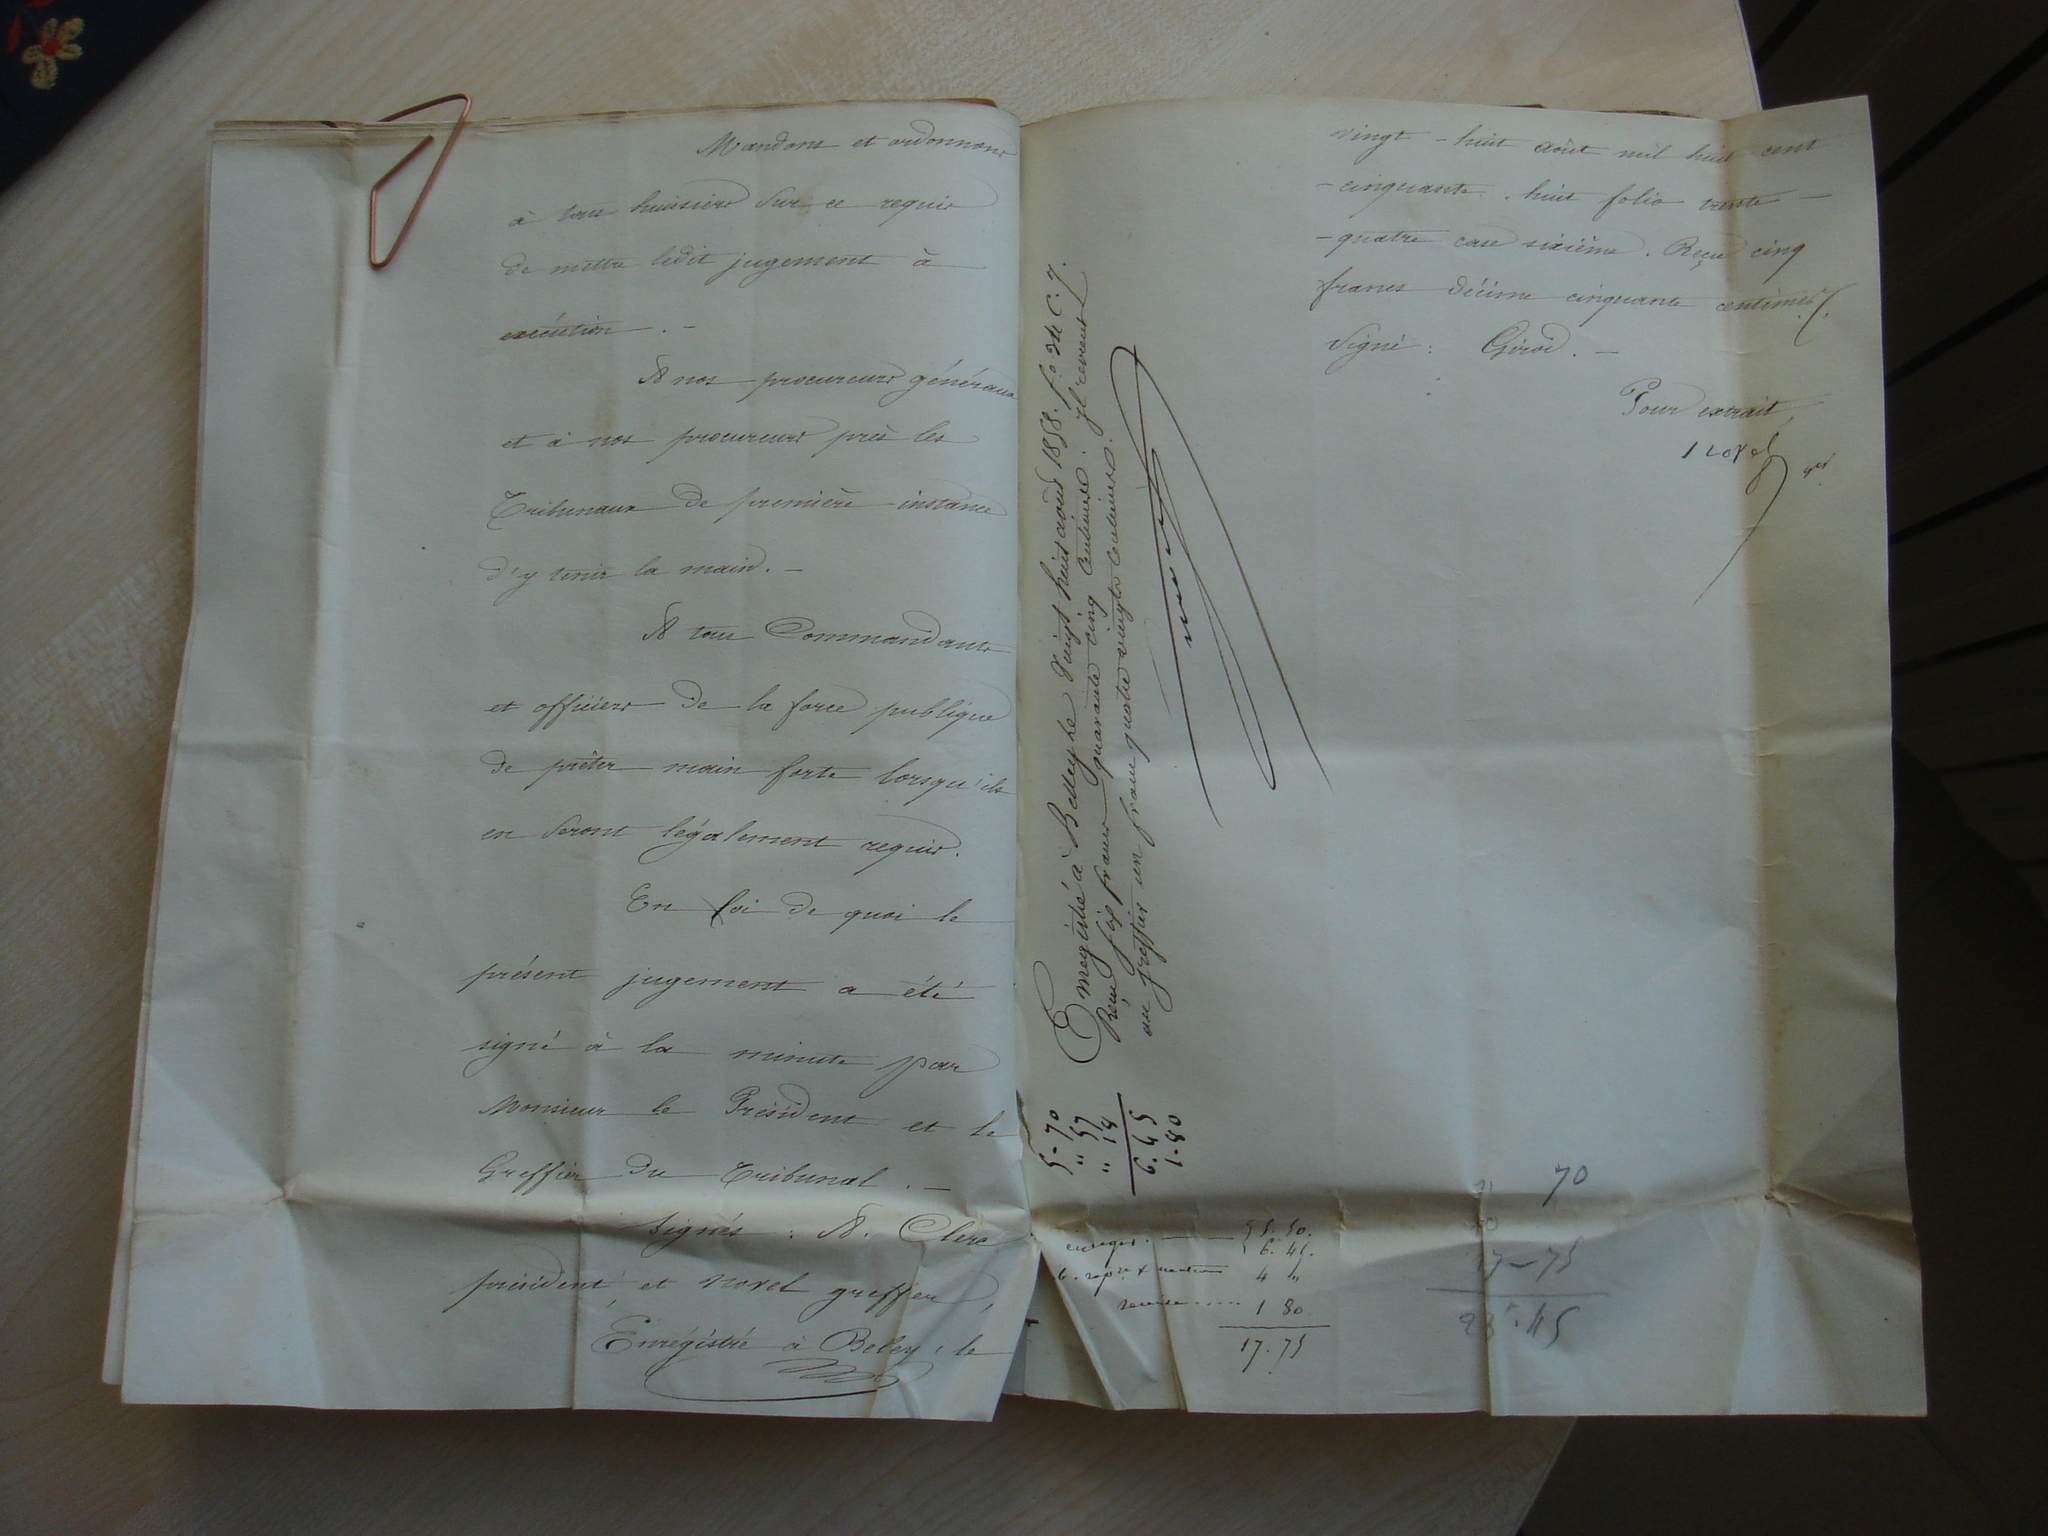 Mandons et ordonnons
à tous huissiers sur ce requis
de mettre ledit jugement à
exécution. -
A nos procureurs généraux
et à nos procureurs près les
Tribunaux de première instance
d'y tenir la main. -
A tous Commandants
et officiers de la force publique
de prêter main forte lorsqu'ils
en seront légalement requis.
En foi de quoi le
présent jugement a été
signé à la minute par
Monsieur le Président et le
Greffier du Tribunal. -
Signés : A. Clerc
président, et Novel greffier,
Enrégistré à Beley, le
vingt-huit août mil huit cent
-cinquante-huit folio trente-
-quatre case sixième. Reçu cinq
francs décime cinquante centimes
Signé : Girod. -
Pour extrait,
Novel
Enregistré à Belley le vingt huit août 1858. f° 34 C. 7.
Reçu six francs quarante cinq centimes. Il revient
au greffier un franc quatre vingts centimes.
5-70
" 57
" 18
6.45
1-80
5.50.
6.45.
4 "
remise .... 1 80
17.75
70
17-75